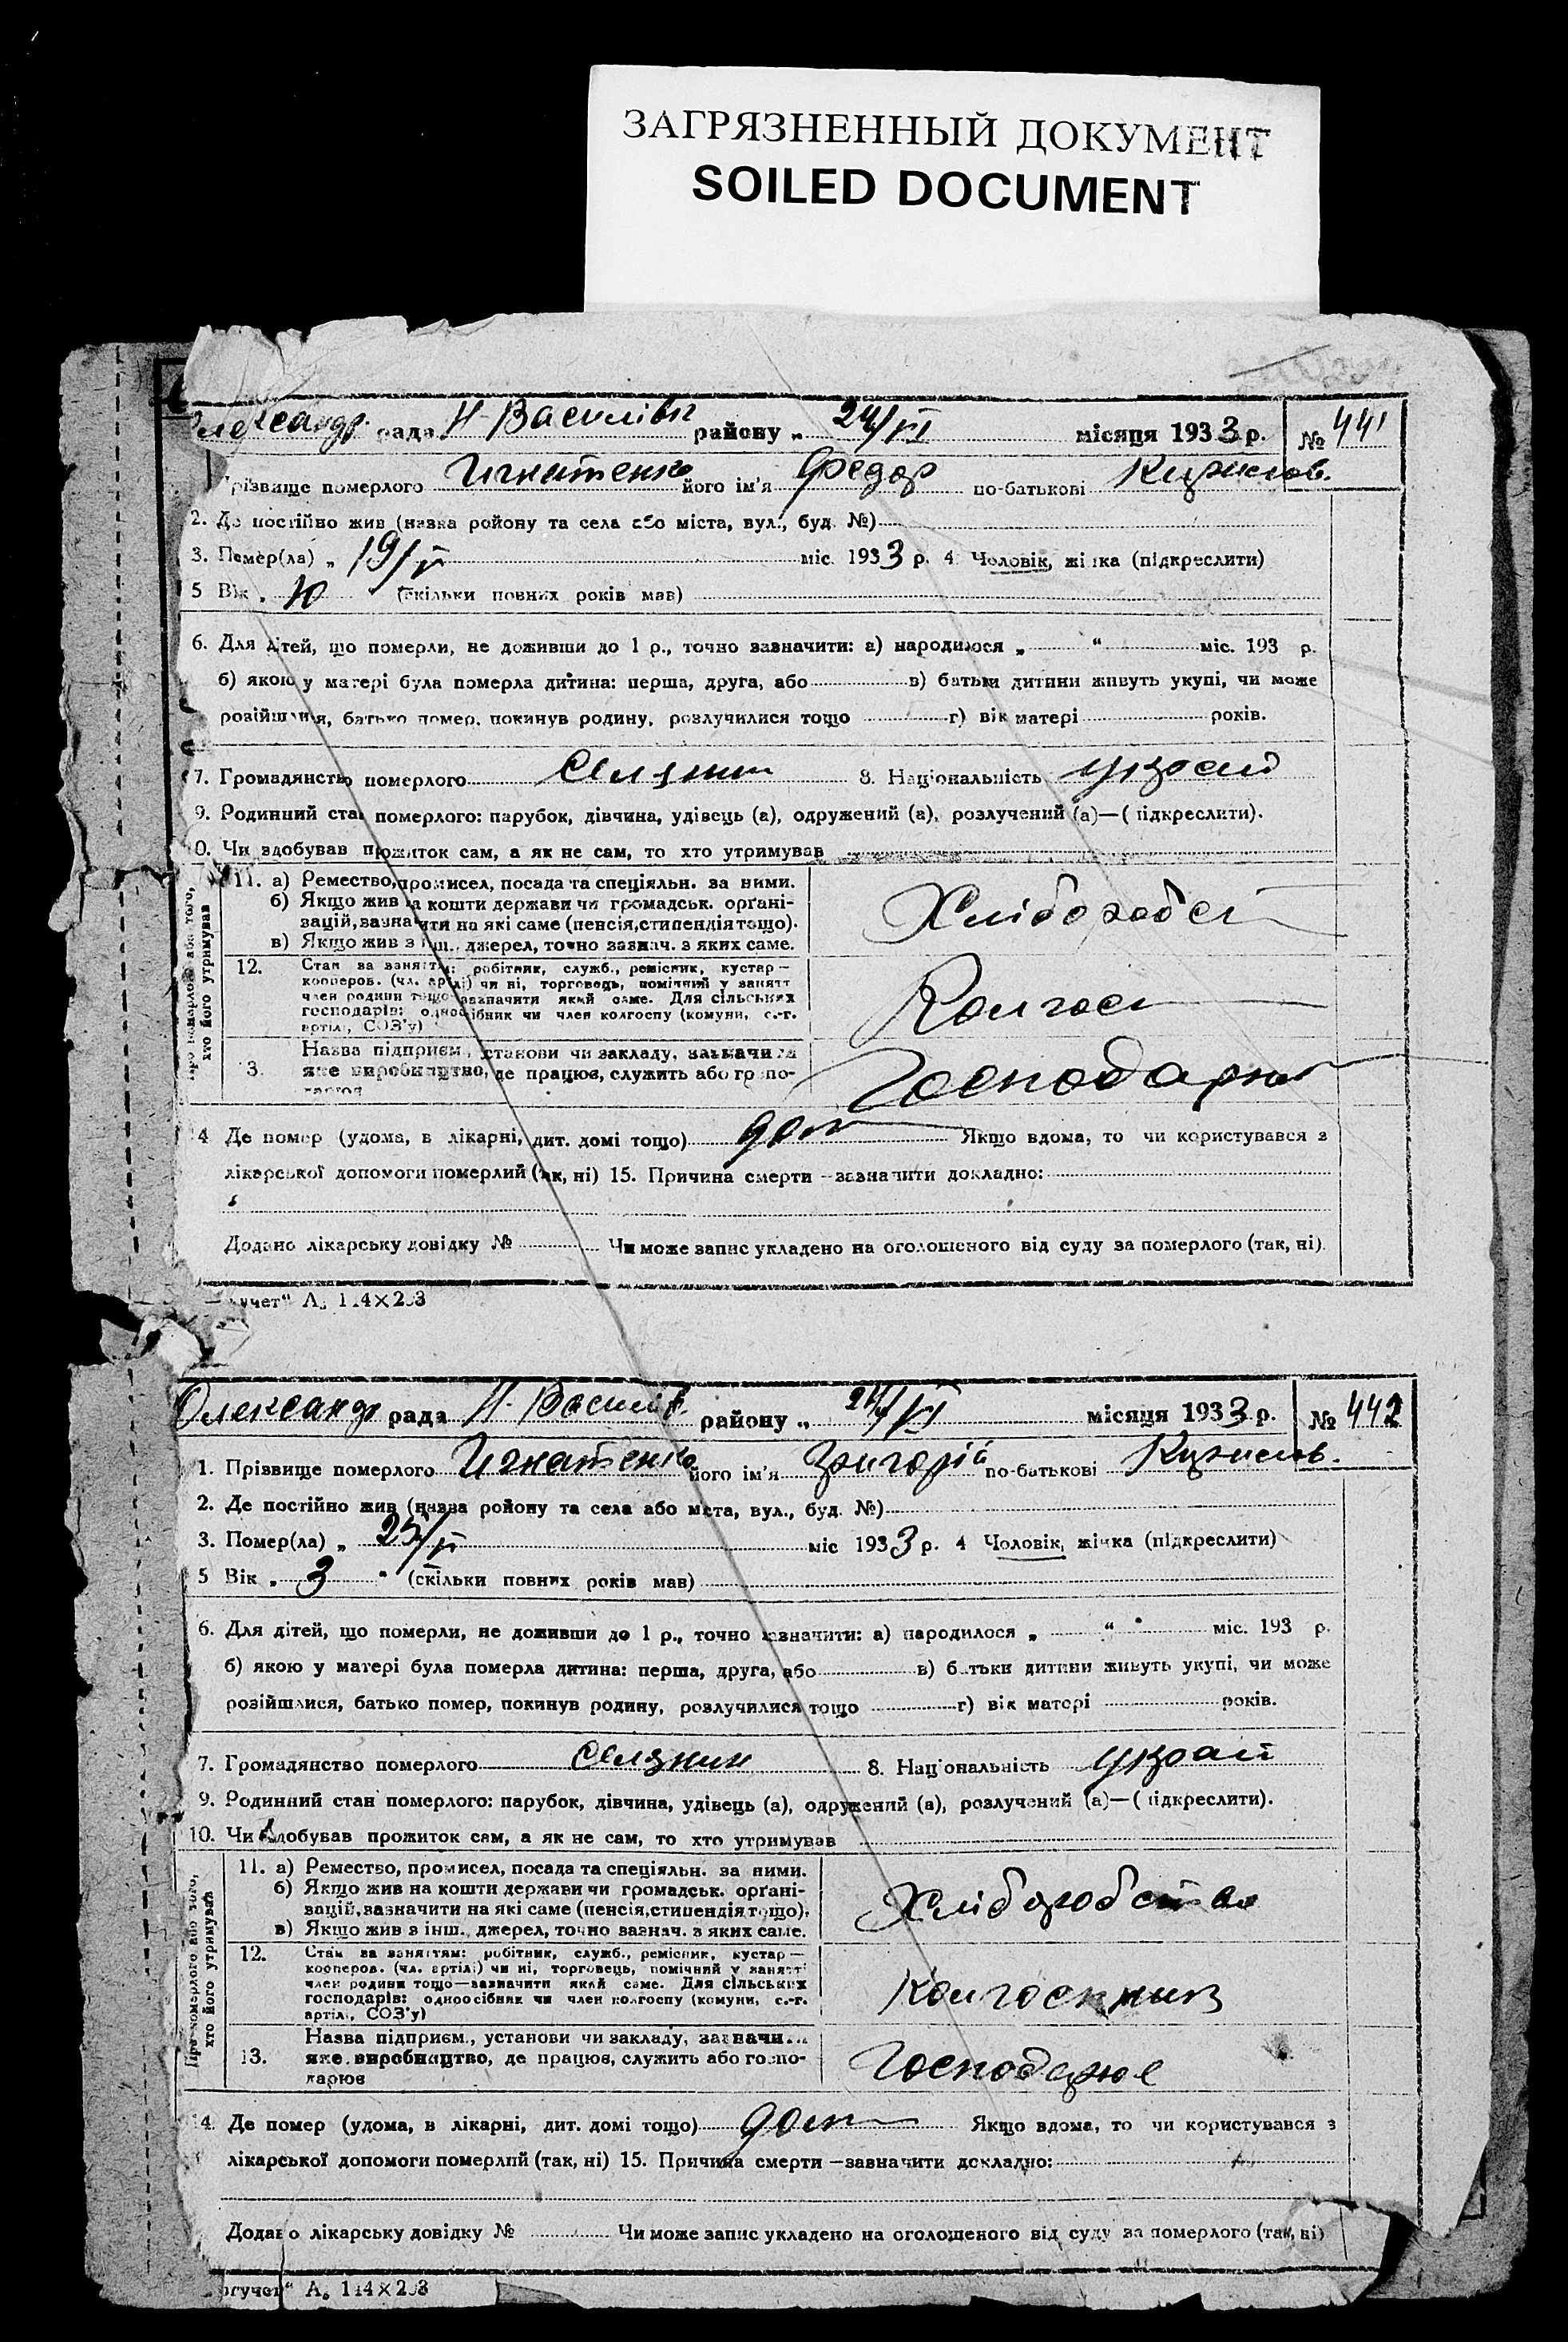 ЗАГРЯЗНЕННЫЙ ДОКУМЕНТ
SOILED DOCUMENT
рада Н-Василівк району „ 24/VI місяця 1933 р. № 441
Прізвище померлого Игнатенко його ім'я Федор по-батькові Кирилов.
2. Де постійно жив (назва ройону та села або міста, вул., буд. №)
3. Помер(ла) „ 19/V міс. 1933 р. 4 Чоловік, жінка (підкреслити)
5 Вік „ 10 (скільки повних років мав)
6. Для дітей, що померли, не доживши до 1 р., точно зазначити: а) народилося „ “ міс. 193 р.
б) якою у матері була померла дитина: перша, друга, або в) батьки дитини живуть укупі, чи може
розійшлися, батько помер, покинув родину, розлучилися тощо г) вік матері років.
7. Громадянство померлого Селянин 8. Національність україн
9. Родинний стан померлого: парубок, дівчина, удівець (а), одружений (а), розлучений (а)—(підкреслити).
10. Чи здобував прожиток сам, а як не сам, то хто утримував
Про померлого або того,
хто його утримував
11. а) Ремество, промисел, посада та спеціяльн. за ними.
б) Якщо жив на кошти держави чи громадськ. орґані-
зацій, зазначити на які саме (пенсія, стипендія тощо).
в) Якщо жив з інш. джерел, точно зазнач. з яких саме.
12. Стан за заняттям: робітник, служб., ремісник, кустар—
кооперов. (чл. артілі) чи ні, торговець, помічний у занятт
член родини тощо—зазначити який саме. Для сільських
господарів: одноосібник чи член колгоспу (комуни, с.-г.
артілі, СОЗ'у)
Колгосп
13. Назва підприєм., установи чи закладу, зазначити
яке виробництво, де працює, служить або госпо-
дарює
14 Де помер (удома, в лікарні, дит. домі тощо) дом Якщо вдома, то чи користувався з
лікарської допомоги померлий (так, ні) 15. Причина смерти—зазначити докладно:
Додано лікарську довідку № Чи може запис укладено на оголошеного від суду за померлого (так, ні).
учет“ А₅ 114×203
Олександр рада Н-Василів. району „ 24/VI місяця 1933 р. № 442
1. Прізвище померлого Игнатенко його ім'я Григорій по-батькові Кирилов.
2. Де постійно жив (назва ройону та села або міста, вул., буд. №)
3. Помер(ла) „ 25/V міс 1933 р. 4 Чоловік, жінка (підкреслити)
5 Вік „ 3 “ (скільки повних років мав)
6. Для дітей, що померли, не доживши до 1 р., точно зазначити: а) народилося „ “ міс. 193 р.
б) якою у матері була померла дитина: перша, друга, або в) батьки дитини живуть укупі, чи може
розійшлися, батько помер, покинув родину, розлучилися тощо г) вік матері років.
7. Громадянство померлого Селянин 8. Національність україн
9. Родинний стан померлого: парубок, дівчина, удівець (а), одружений (а), розлучений (а)—(підкреслити).
10. Чи здобував прожиток сам, а як не сам, то хто утримував
Про померлого або того,
хто його утримував
11. а) Ремество, промисел, посада та спеціяльн. за ними.
б) Якщо жив на кошти держави чи громадськ. орґані-
зацій, зазначити на які саме (пенсія, стипендія тощо).
в) Якщо жив з інш. джерел, точно зазнач. з яких саме.
Хліборобство
12. Стан за заняттям: робітник, служб., ремісник, кустар—
кооперов. (чл. артілі) чи ні, торговець, помічний у занятті
член родини тощо—зазначити який саме. Для сільських
господарів: одноосібник чи член колгоспу (комуни, с.-г.
артілі, СОЗ'у)
Колгоспник
13. Назва підприєм., установи чи закладу, зазначи
яке виробництво, де працює, служить або госпо-
дарює
Господарює
14. Де помер (удома, в лікарні, дит. домі тощо) дом Якщо вдома, то чи користувався з
лікарської допомоги померлий (так, ні) 15. Причина смерти—зазначити докладно:
Додано лікарську довідку № Чи може запис укладено на оголошеного від суду за померлого (так, ні)
ргучет“ А₅ 114×203